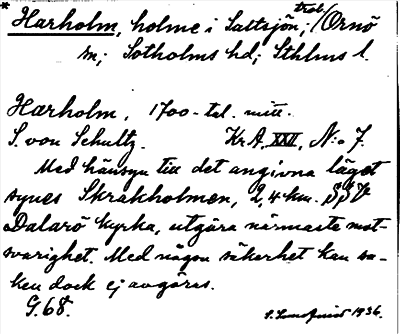 * Harholm, holme i Saltsjön, trol. / Ornö
sn; Sotholms hd; Sthlms l.
Harholm, 1700-tal. mitt.
S. von Schultz. Kr A, XXII, N:o 7.
Med hänsyn till det angivna läget
synes Skrakholmen, 2,4 km. SSV
Dalarö kyrka, utgöra närmaste mot-
svarighet. Med någon säkerhet kan sa-
ken dock ej avgöras.
G. 68. 1936.